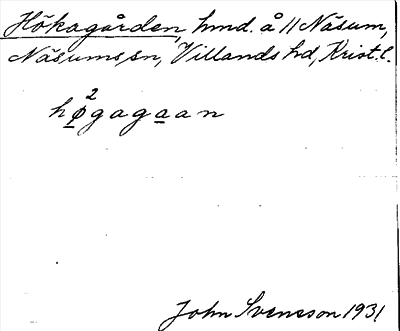 Hökagården, hmd. å 11 Näsum,
Näsums sn, Villands hd, Krist. l.
hø²gagaan
John Svensson 1931